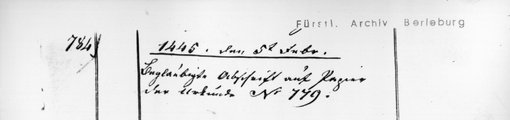 Fürstl. Archiv Berleburg
784
1445. den 5t Febr.
Beglaubigte Abschrift auf Papier
der Urkunde No 779.